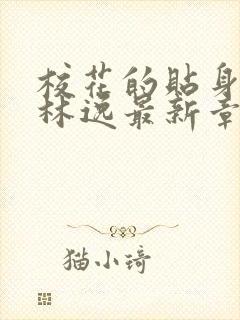 校花的贴身
林逸最新章
猫小琦